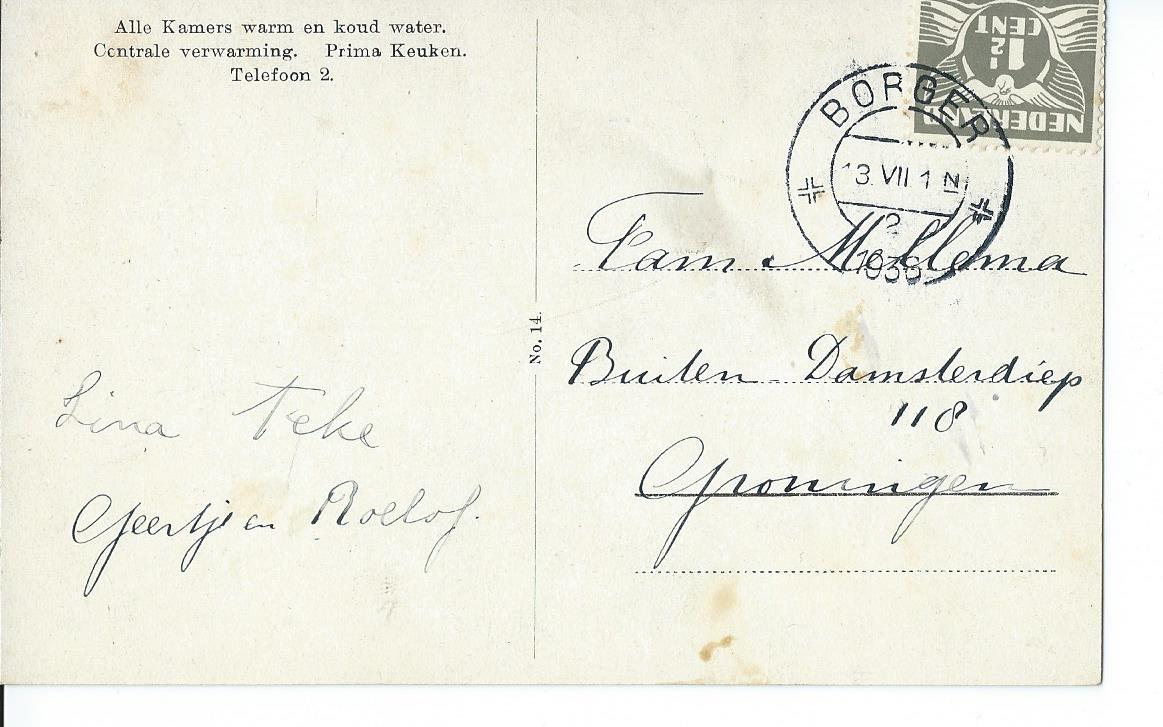 Alle Kamers warm en koud water.
Centrale verwarming. Prima Keuken.
Telefoon 2.
1½
CENT
NEDERLAND
BORGER
13 VII 1 N
1936
No. 14.
Fam. Mellema
Buiten Damsterdiep
118
Groningen
Lina Teke
Geertje en Roelof.